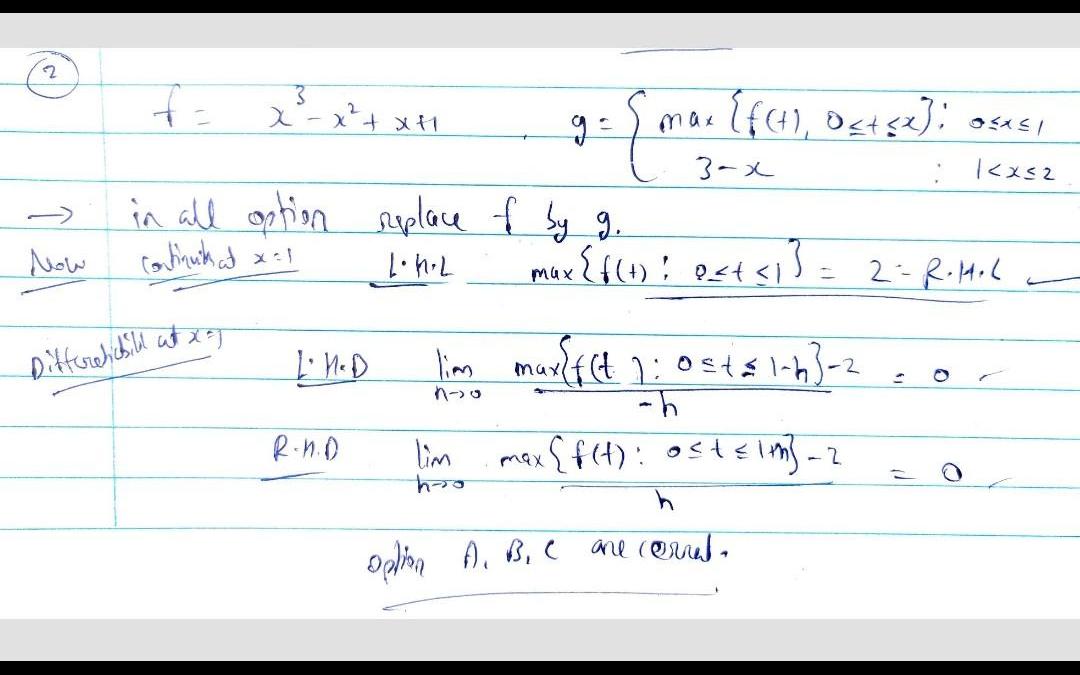 2
f = x³ - x² + x + 1 , g = { max {f(t), 0≤t≤x} ; 0≤x≤1
3-x : 1<x≤2
→ in all option replace f by g.
Now L.H.L max{f(t) : 0≤t≤1} = 2 = R.H.L
at x=1 L.H.D lim h→0 max{f(t) : 0≤t≤1-h} - 2 / -h = 0
R.H.D lim h→0 max{f(t) : 0≤t≤1+h} - 2 / h = 0
option A, B, C are correct.